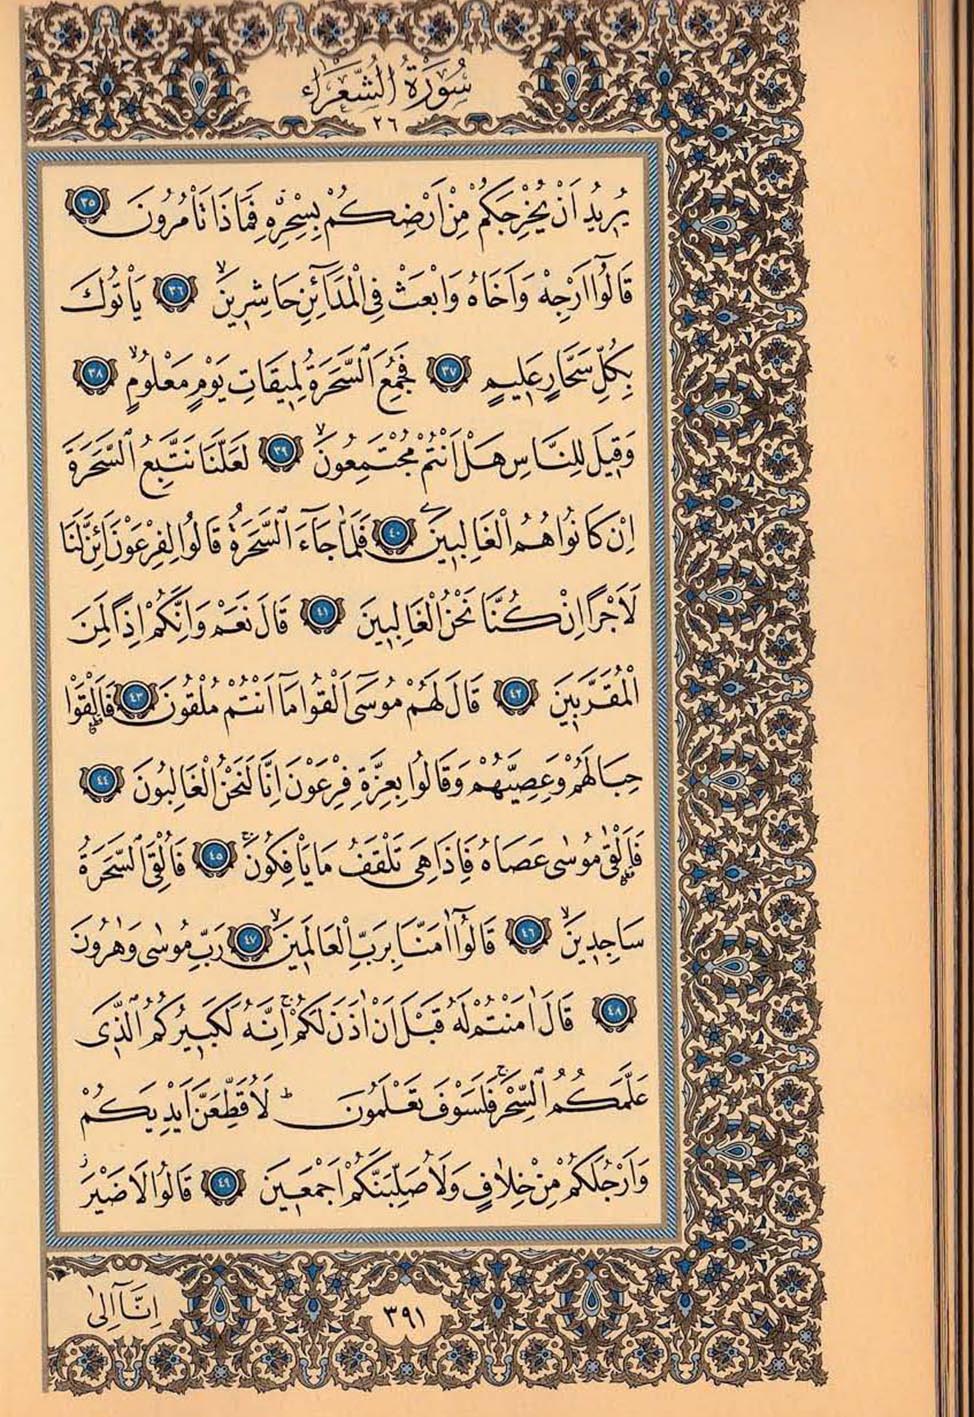 سُورَةُ الشُّعَرَاءِ
٢٦
يُرِيدُ اَنْ يُخْرِجَكُمْ مِنْ اَرْضِكُمْ بِسِحْرِهِ فَمَاذَا تَأْمُرُونَ ٣٥
قَالُٓوا اَرْجِهْ وَاَخَاهُ وَابْعَثْ فِى الْمَدَٓائِنِ حَاشِرِينَۙ ٣٦ يَأْتُوكَ
بِكُلِّ سَحَّارٍ عَلِيمٍ ٣٧ فَجُمِعَ السَّحَرَةُ لِمِيقَاتِ يَوْمٍ مَعْلُومٍۙ ٣٨
وَقِيلَ لِلنَّاسِ هَلْ اَنْتُمْ مُجْتَمِعُونَۙ ٣٩ لَعَلَّنَا نَتَّبِعُ السَّحَرَةَ
اِنْ كَانُوا هُمُ الْغَالِبِينَ ٤٠ فَلَمَّا جَٓاءَ السَّحَرَةُ قَالُوا لِفِرْعَوْنَ اَئِنَّ لَنَا
لَاَجْرًا اِنْ كُنَّا نَحْنُ الْغَالِبِينَ ٤١ قَالَ نَعَمْ وَاِنَّكُمْ اِذًا لَمِنَ
الْمُقَرَّبِينَ ٤٢ قَالَ لَهُمْ مُوسٰٓى اَلْقُوا مَٓا اَنْتُمْ مُلْقُونَ ٤٣ فَاَلْقَوْا
حِبَالَهُمْ وَعِصِيَّهُمْ وَقَالُوا بِعِزَّةِ فِرْعَوْنَ اِنَّا لَنَحْنُ الْغَالِبُونَ ٤٤
فَاَلْقٰى مُوسٰى عَصَاهُ فَاِذَا هِىَ تَلْقَفُ مَا يَأْفِكُونَۚ ٤٥ فَاُلْقِىَ السَّحَرَةُ
سَاجِدِينَۙ ٤٦ قَالُٓوا اٰمَنَّا بِرَبِّ الْعَالَمِينَۙ ٤٧ رَبِّ مُوسٰى وَهٰرُونَ
٤٨ قَالَ اٰمَنْتُمْ لَهُ قَبْلَ اَنْ اٰذَنَ لَكُمْۚ اِنَّهُ لَكَبِيرُكُمُ الَّذِى
عَلَّمَكُمُ السِّحْرَۚ فَلَسَوْفَ تَعْلَمُونَؕ لَاُقَطِّعَنَّ اَيْدِيَكُمْ
وَاَرْجُلَكُمْ مِنْ خِلَافٍ وَلَاُصَلِّبَنَّكُمْ اَجْمَعِينَ ٤٩ قَالُوا لَا ضَيْرَ
٣٩١
اِنَّٓا اِلٰى